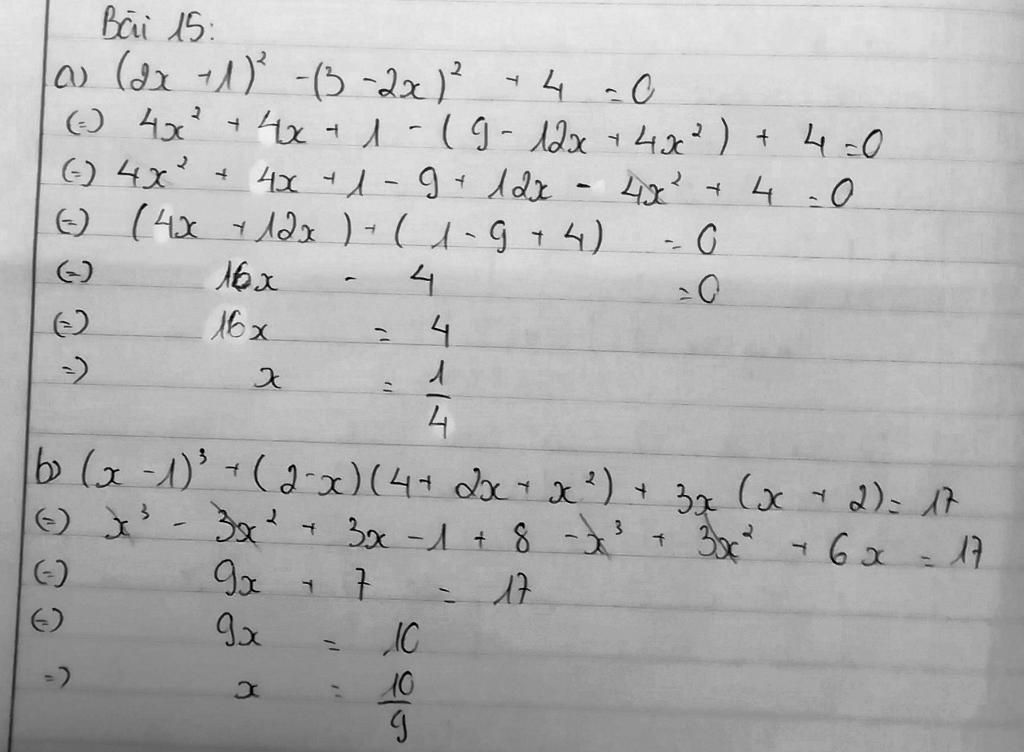 Bài 15:
a) (2x + 1)² - (3 - 2x)² + 4 = 0
(=) 4x² + 4x + 1 - (9 - 12x + 4x²) + 4 = 0
(=) 4x² + 4x + 1 - 9 + 12x - 4x² + 4 = 0
(=) (4x + 12x) + (1 - 9 + 4) = 0
(=) 16x - 4 = 0
(=) 16x = 4
=) x = 1/4
b) (x - 1)³ + (2 - x)(4 + 2x + x²) + 3x (x + 2) = 17
(=) x³ - 3x² + 3x - 1 + 8 - x³ + 3x² + 6x = 17
(=) 9x + 7 = 17
(=) 9x = 10
=) x = 10/9